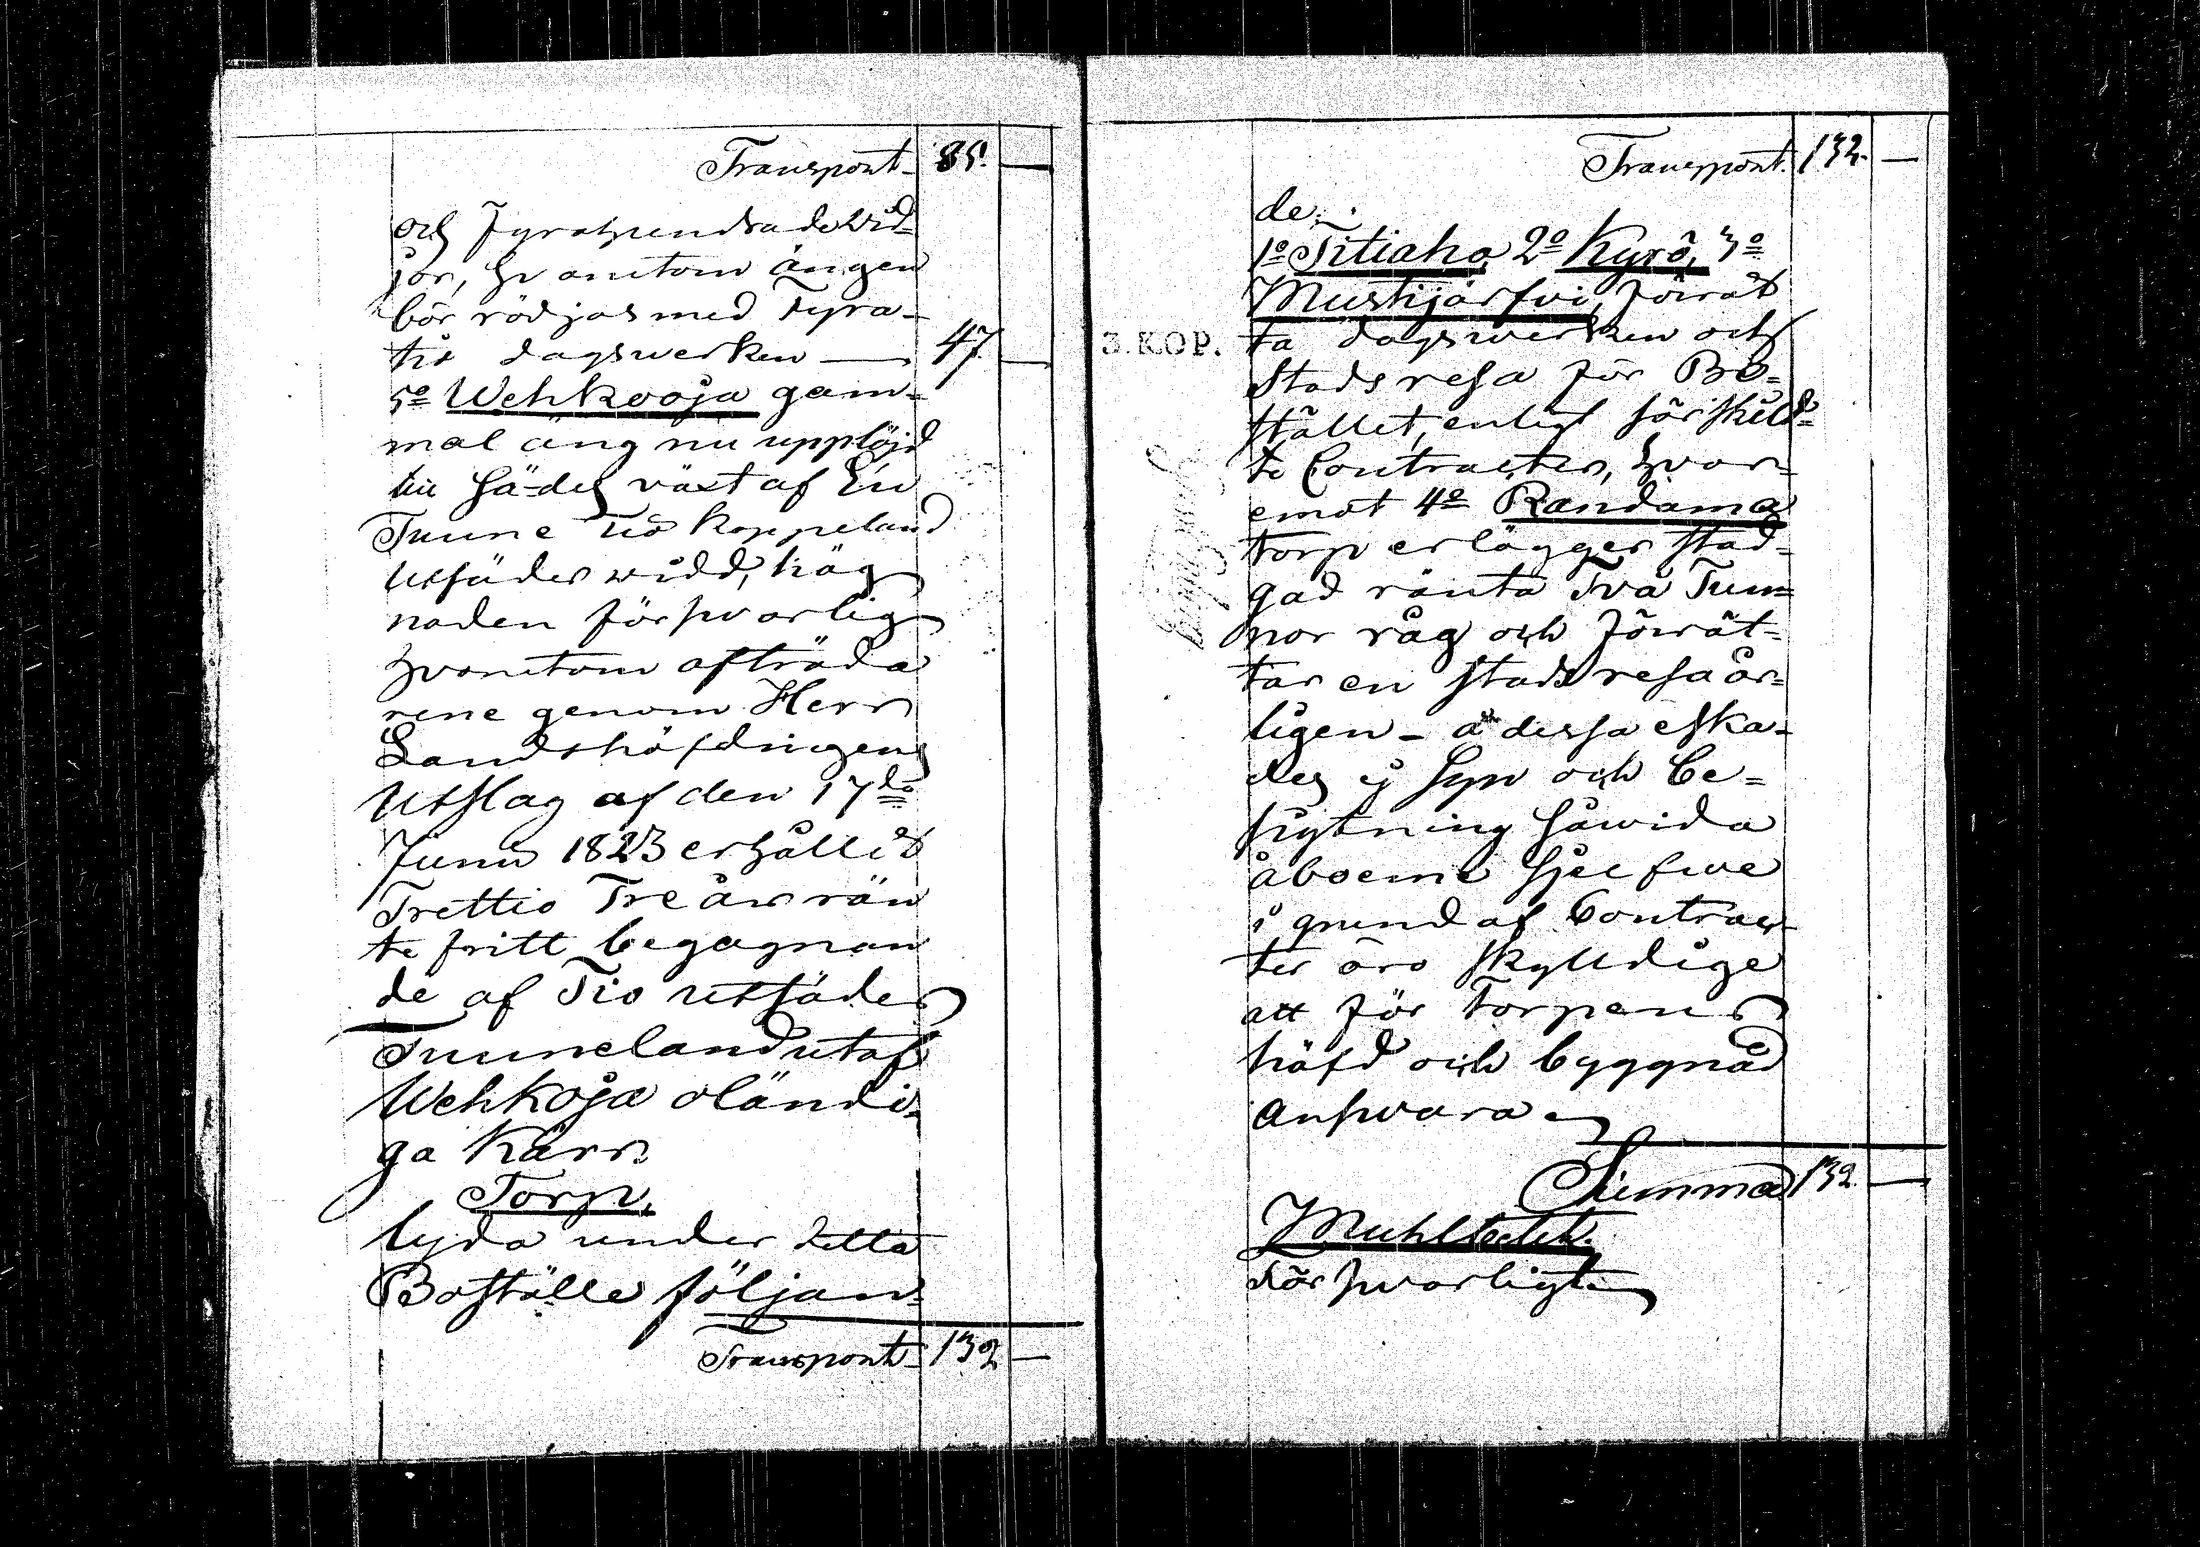 Transport 85. —
och Fyrahundrade Wid-
jor, hvarutom ängen
bör rödjas med Fyra-
tio dagswerken — 47 —
5o Wehkooja gam-
mal äng nu upplöjd
till Sä-des växt af En
Tunne Tio kappeland
Utsädes widd, häg
naden försvarlig
hvarutom afträda
rene genom Herr
Landshöfdingens
Utslag af den 17de
Junii 1823 erhållit
Trettio Tre års rän
te fritt begagnan
de af Tio utsädes
Tunneland utaf
Wehkoja oländi-
ga Kärr.
Torp,
lyda under detta
Boställe följan-
Transport 132 —
Transport. 132. —
de:
1o Titiaho, 2o Kyrö, 3o
Mustijärfvi, förrät
3. KOP.
ta dagswerken och
Stads resa för Bo-
stället, enligt särskild-
te Contracter, hvar-
emot 4o Randama
torp erlägger stad-
gad ränta Två Tun-
nor råg och förrät-
tar en stads resa år-
ligen – å dessa eska-
des ej Syn och be-
sigtning såwida
åboerne sjelfwe
i grund af Contrac-
ter äro skylldige
att för Torpens
häfd och byggnad
answara
Summa 132 —
Försvarligt